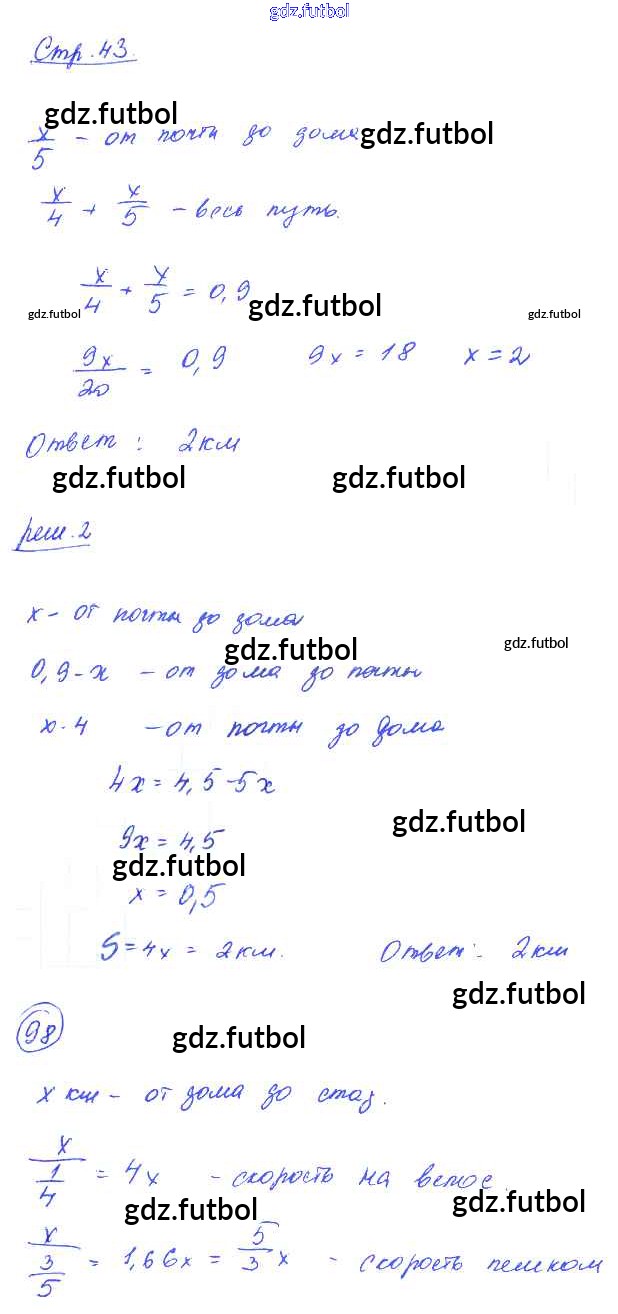 gdz.futbol
Стр. 43.
gdz.futbol
x/5 - от почты до дома gdz.futbol
x/4 + x/5 - весь путь.
x/4 + x/5 = 0,9 gdz.futbol
gdz.futbol gdz.futbol
9x/20 = 0,9 9x = 18 x = 2
Ответ: 2км
gdz.futbol gdz.futbol
реш. 2
x - от почты до дома
gdz.futbol gdz.futbol
0,9-x - от дома до почты
x·4 - от почты до дома
4x = 4,5-5x
gdz.futbol
9x = 4,5
gdz.futbol
x = 0,5
S = 4x = 2км. Ответ: 2км
gdz.futbol
98
gdz.futbol
x км - от дома до стад.
x/(1/4) = 4x - скорость на велос.
gdz.futbol gdz.futbol
x/(3/5) = 1,66x = 5/3 x - скорость пешком